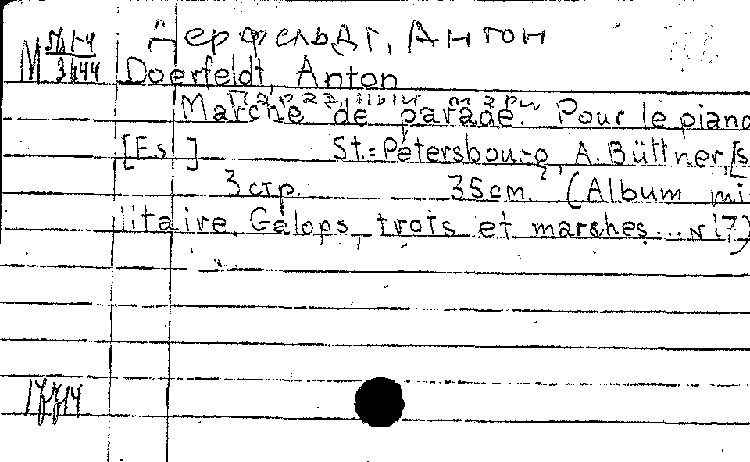 Дерфельдт, Антон
Doerfeldt, Anton
Marche de parade. Pour le piano
[Es] St.=Pétersbourg, A. Büttner, [s
3 стр. 35 cm. (Album mi
litaire. Galops, trots et marches... N 17)